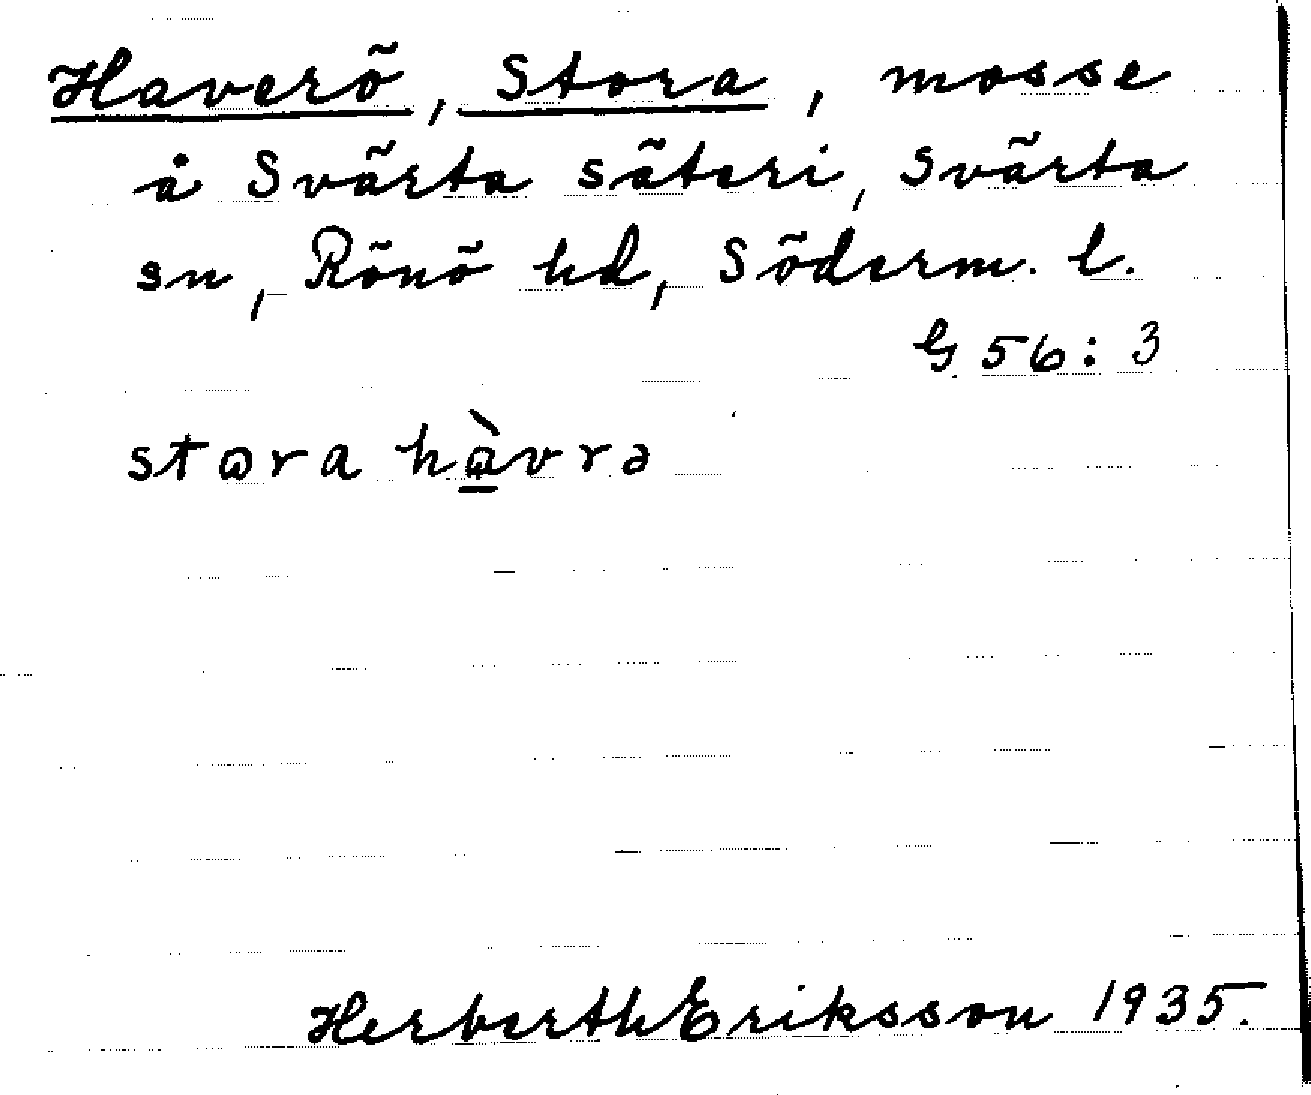 Haverö, Stora, mosse
å Svärta säteri, Svärta
sn, Rönö hd, Söderm. l.
G 56:3
stɷra hɷ̀vrə
Herberth Eriksson 1935.